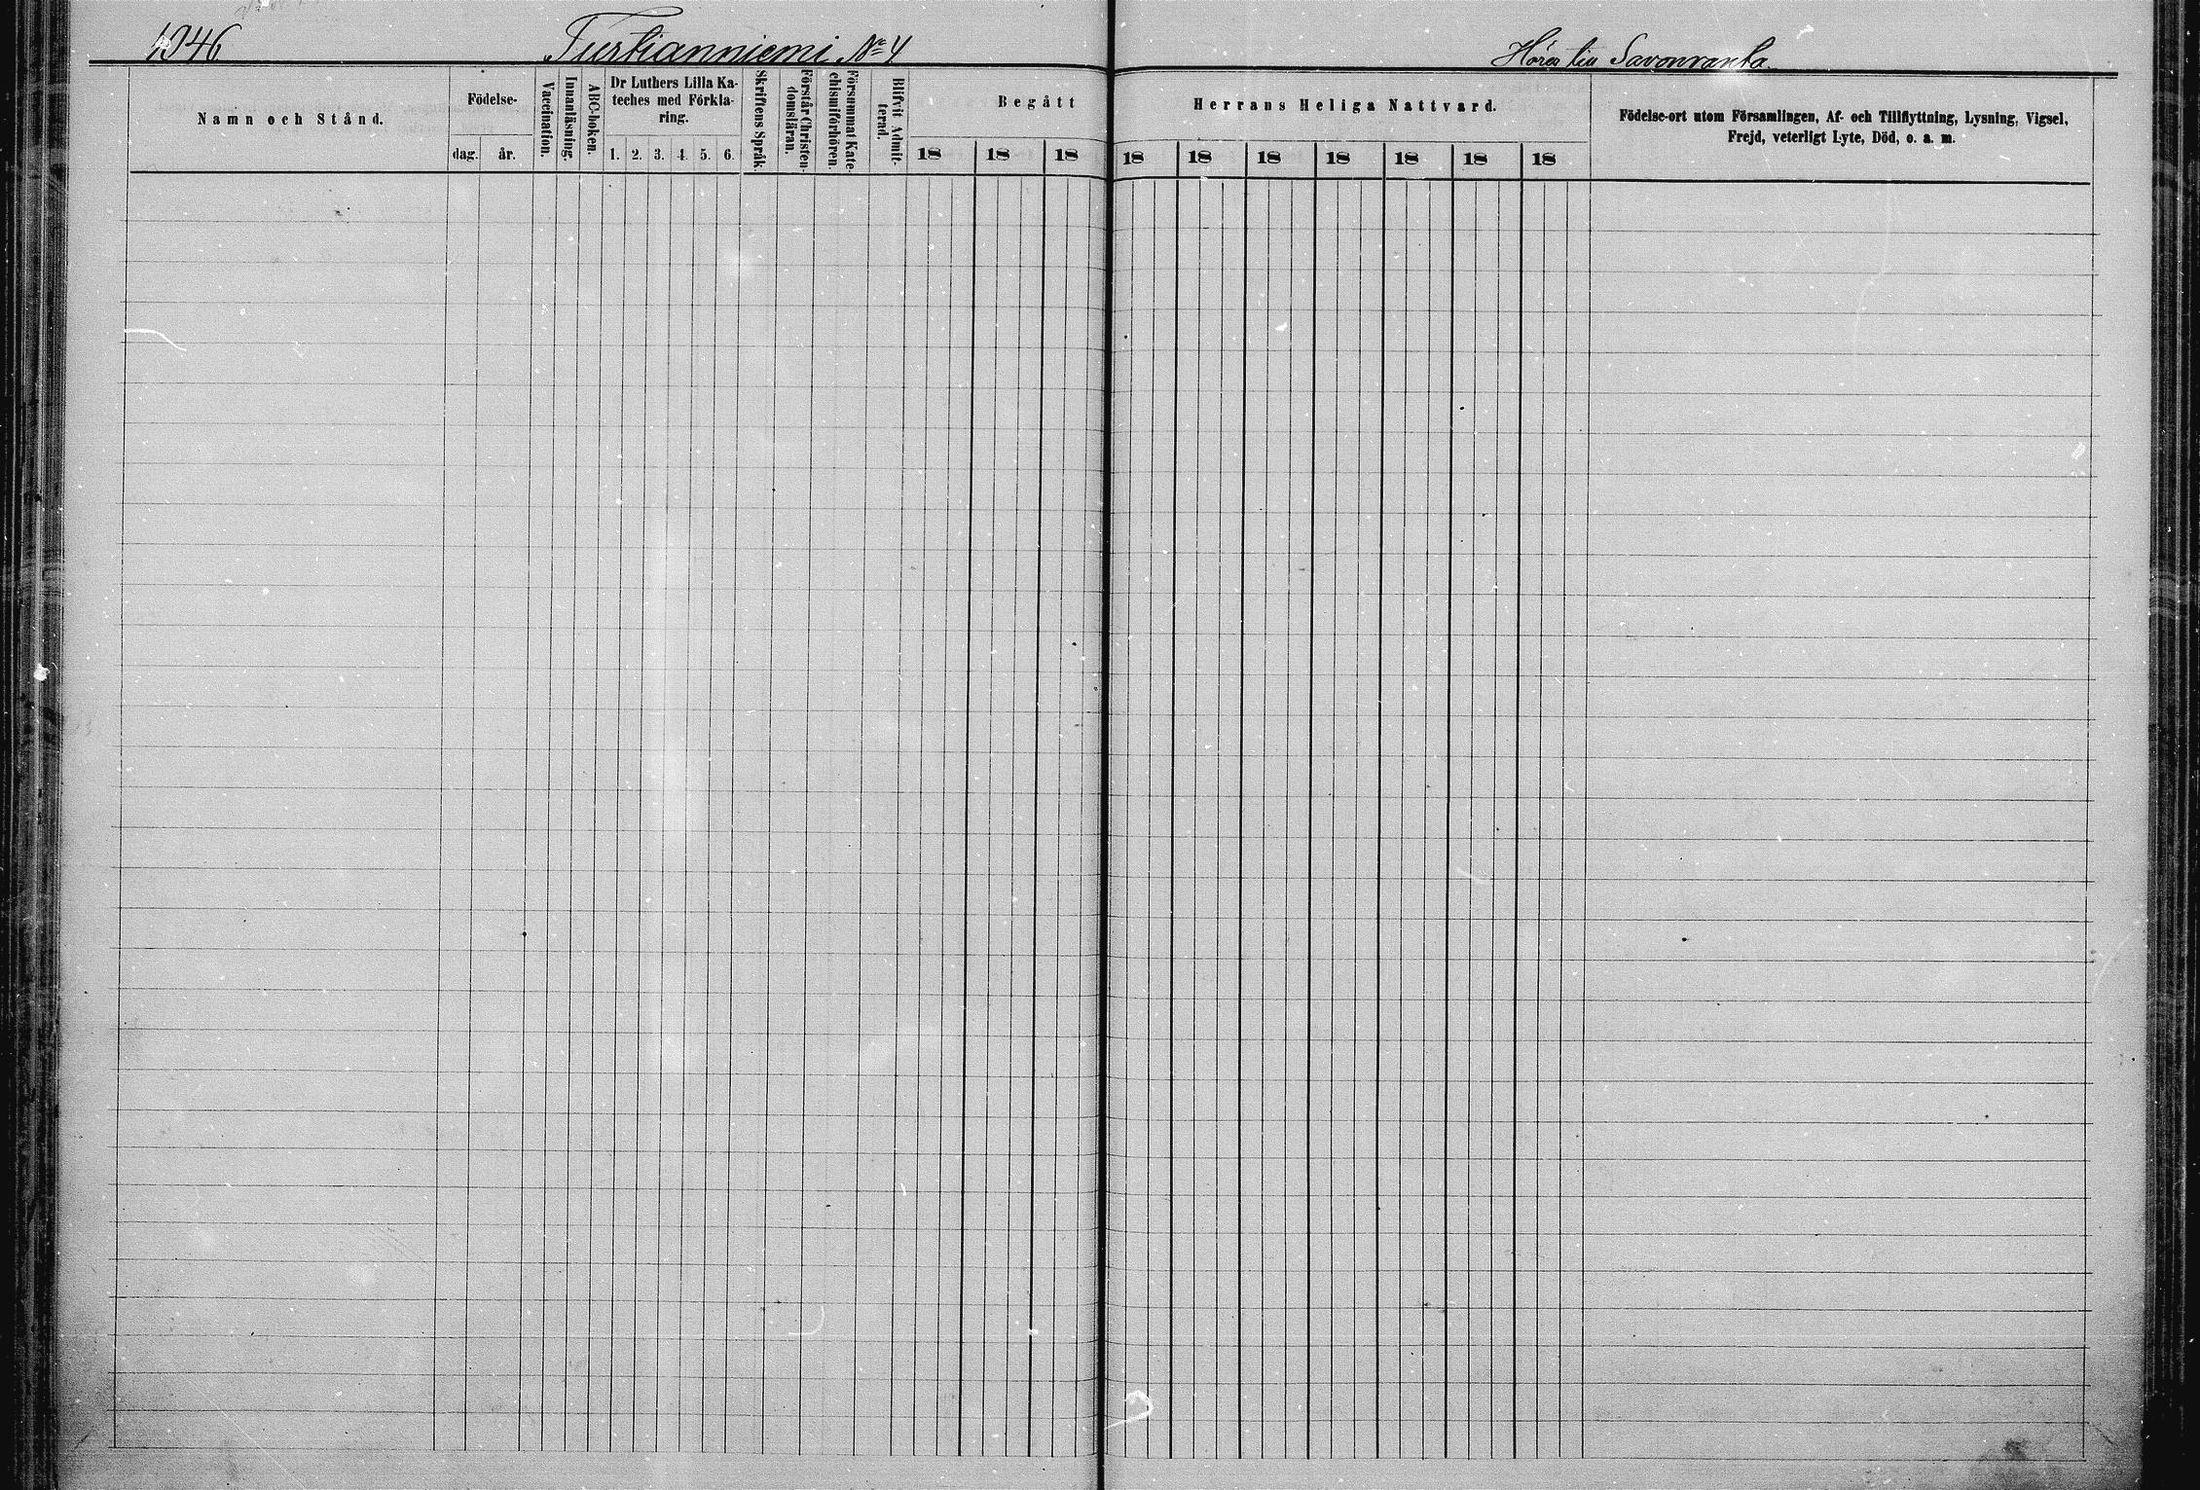 1946 Turtianniemi No 4 Hörer till Savonranta
Namn och Stånd.
Födelse-
dag. år.
Vaccination.
Innanläsning.
ABC-boken.
Dr Luthers Lilla Ka-
teches med Förkla-
ring.
1. 2. 3. 4. 5. 6.
Skriftens Språk.
Förstår Christen-
domsläran.
Försummat Kate-
chismiförhören.
Blifvit Admit-
terad.
Begått Herrans Heliga Nattvard.
18 18 18 18 18 18 18 18 18 18
Födelse-ort utom Församlingen, Af- och Tillflyttning, Lysning, Vigsel,
Frejd, veterligt Lyte, Död, o. a. m.